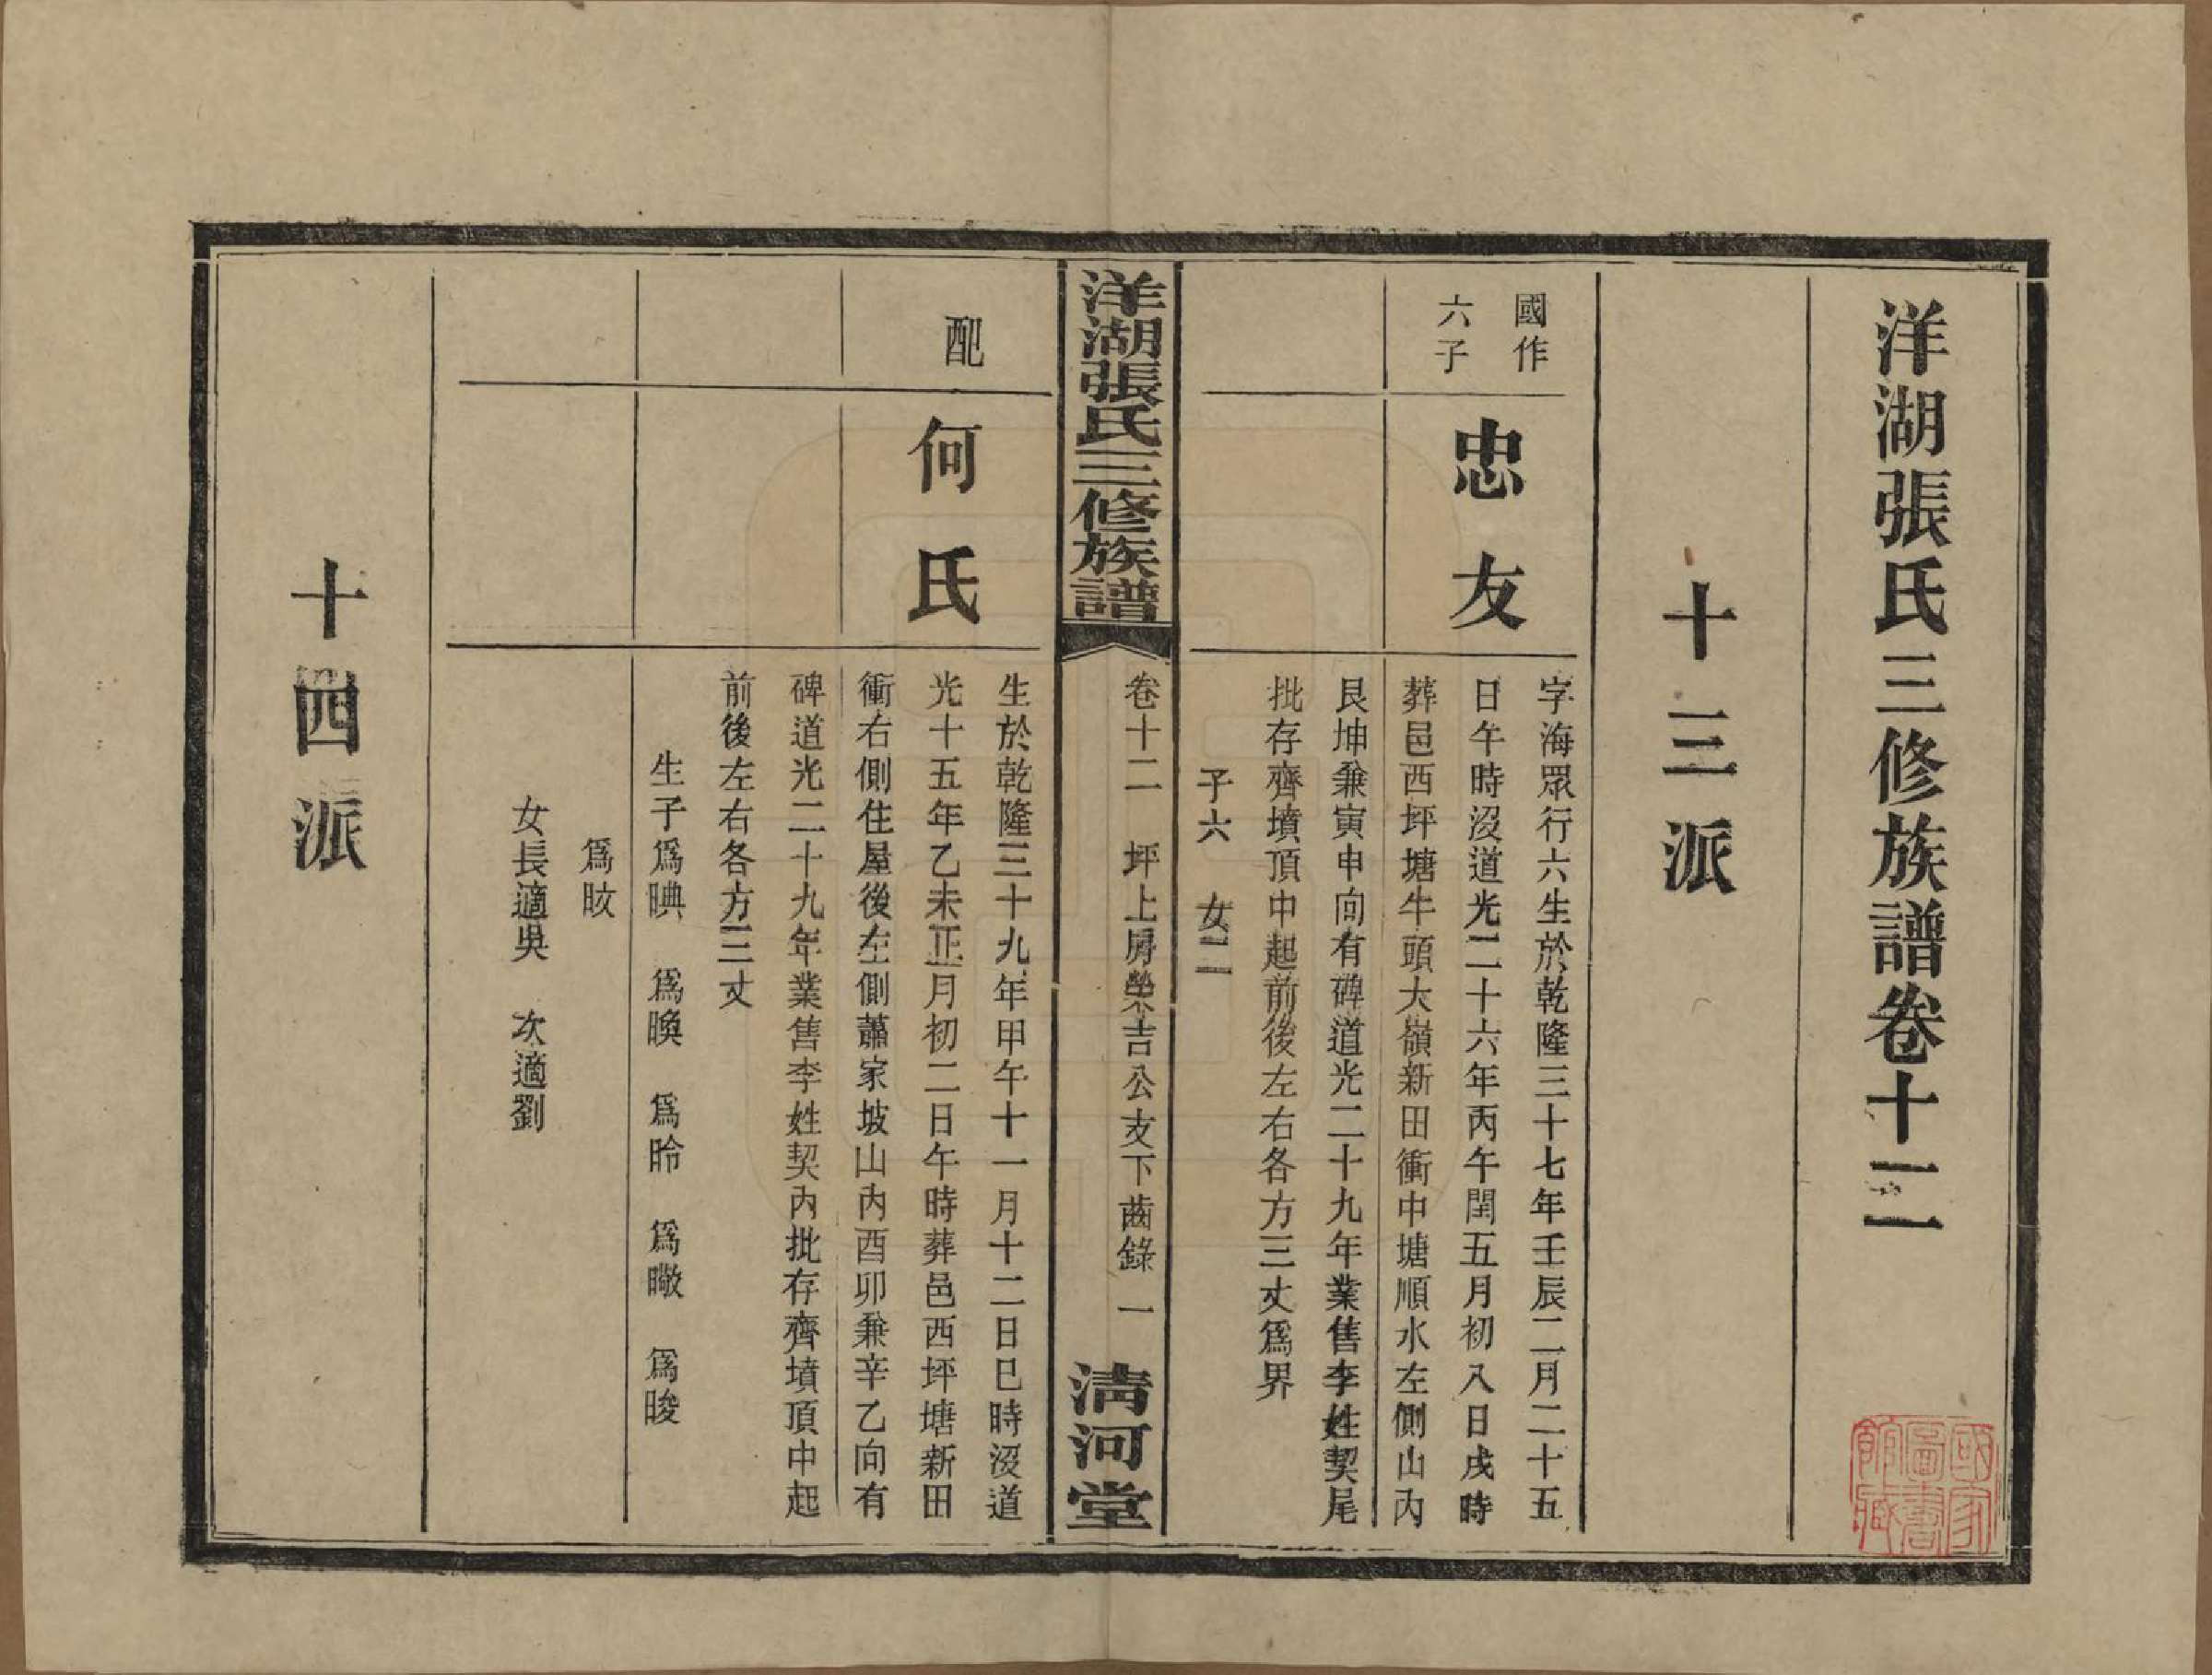 洋湖張氏三修族譜卷十二
十三派
國作
六子
忠友
字海眾行六生於乾隆三十七年壬辰二月二十五
日午時沒道光二十六年丙午閏五月初八日戌時
葬邑西坪塘牛頭大嶺新田衝中塘順水左側山內
艮坤兼寅申向有碑道光二十九年業售李姓契尾
批存齊墳頂中起前後左右各方三丈爲界
子六 女二
洋湖張氏三修族譜
卷十二 坪上房榮吉公支下齒錄 一
清河堂
配
何氏
生於乾隆三十九年甲午十一月十二日巳時沒道
光十五年乙未正月初二日午時葬邑西坪塘新田
衝右側住屋後左側蕭家坡山內酉卯兼辛乙向有
碑道光二十九年業售李姓契內批存齊墳頂中起
前後左右各方三丈
生子爲晪 爲㬇 爲昤 爲暾 爲晙
爲旼
女長適吳 次適劉
十四派
國家圖書館藏